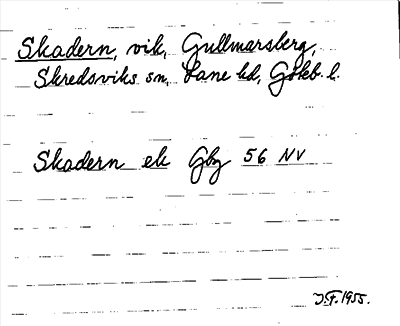 Skadern, vik, Gullmarsberg,
Skredsviks sn, Lane hd, Göteb. l.
Skadern ek Gbg 56 NV
J.F. 1955.